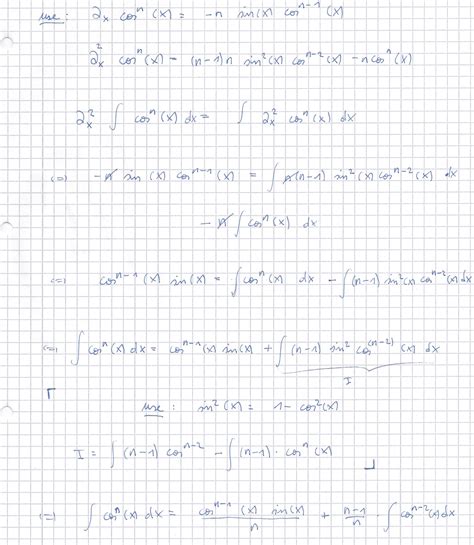 use: ∂ₓ cosⁿ(x) = -n sin(x) cosⁿ⁻¹(x)
∂ₓ² cosⁿ(x) = (n-1)n sin²(x) cosⁿ⁻²(x) - n cosⁿ(x)
∂ₓ² ∫ cosⁿ(x) dx = ∫ ∂ₓ² cosⁿ(x) dx
⇔ -n sin(x) cosⁿ⁻¹(x) = ∫ n(n-1) sin²(x) cosⁿ⁻²(x) dx
- n ∫ cosⁿ(x) dx
⇔ cosⁿ⁻¹(x) sin(x) = ∫ cosⁿ(x) dx - ∫ (n-1) sin²(x) cosⁿ⁻²(x) dx
⇔ ∫ cosⁿ(x) dx = cosⁿ⁻¹(x) sin(x) + ∫ (n-1) sin² cos⁽ⁿ⁻²⁾(x) dx
I
use: sin²(x) = 1 - cos²(x)
I = ∫ (n-1) cosⁿ⁻² - ∫ (n-1) · cosⁿ(x)
⇔ ∫ cosⁿ(x) dx = cosⁿ⁻¹(x) sin(x) / n + n-1 / n · ∫ cosⁿ⁻²(x) dx